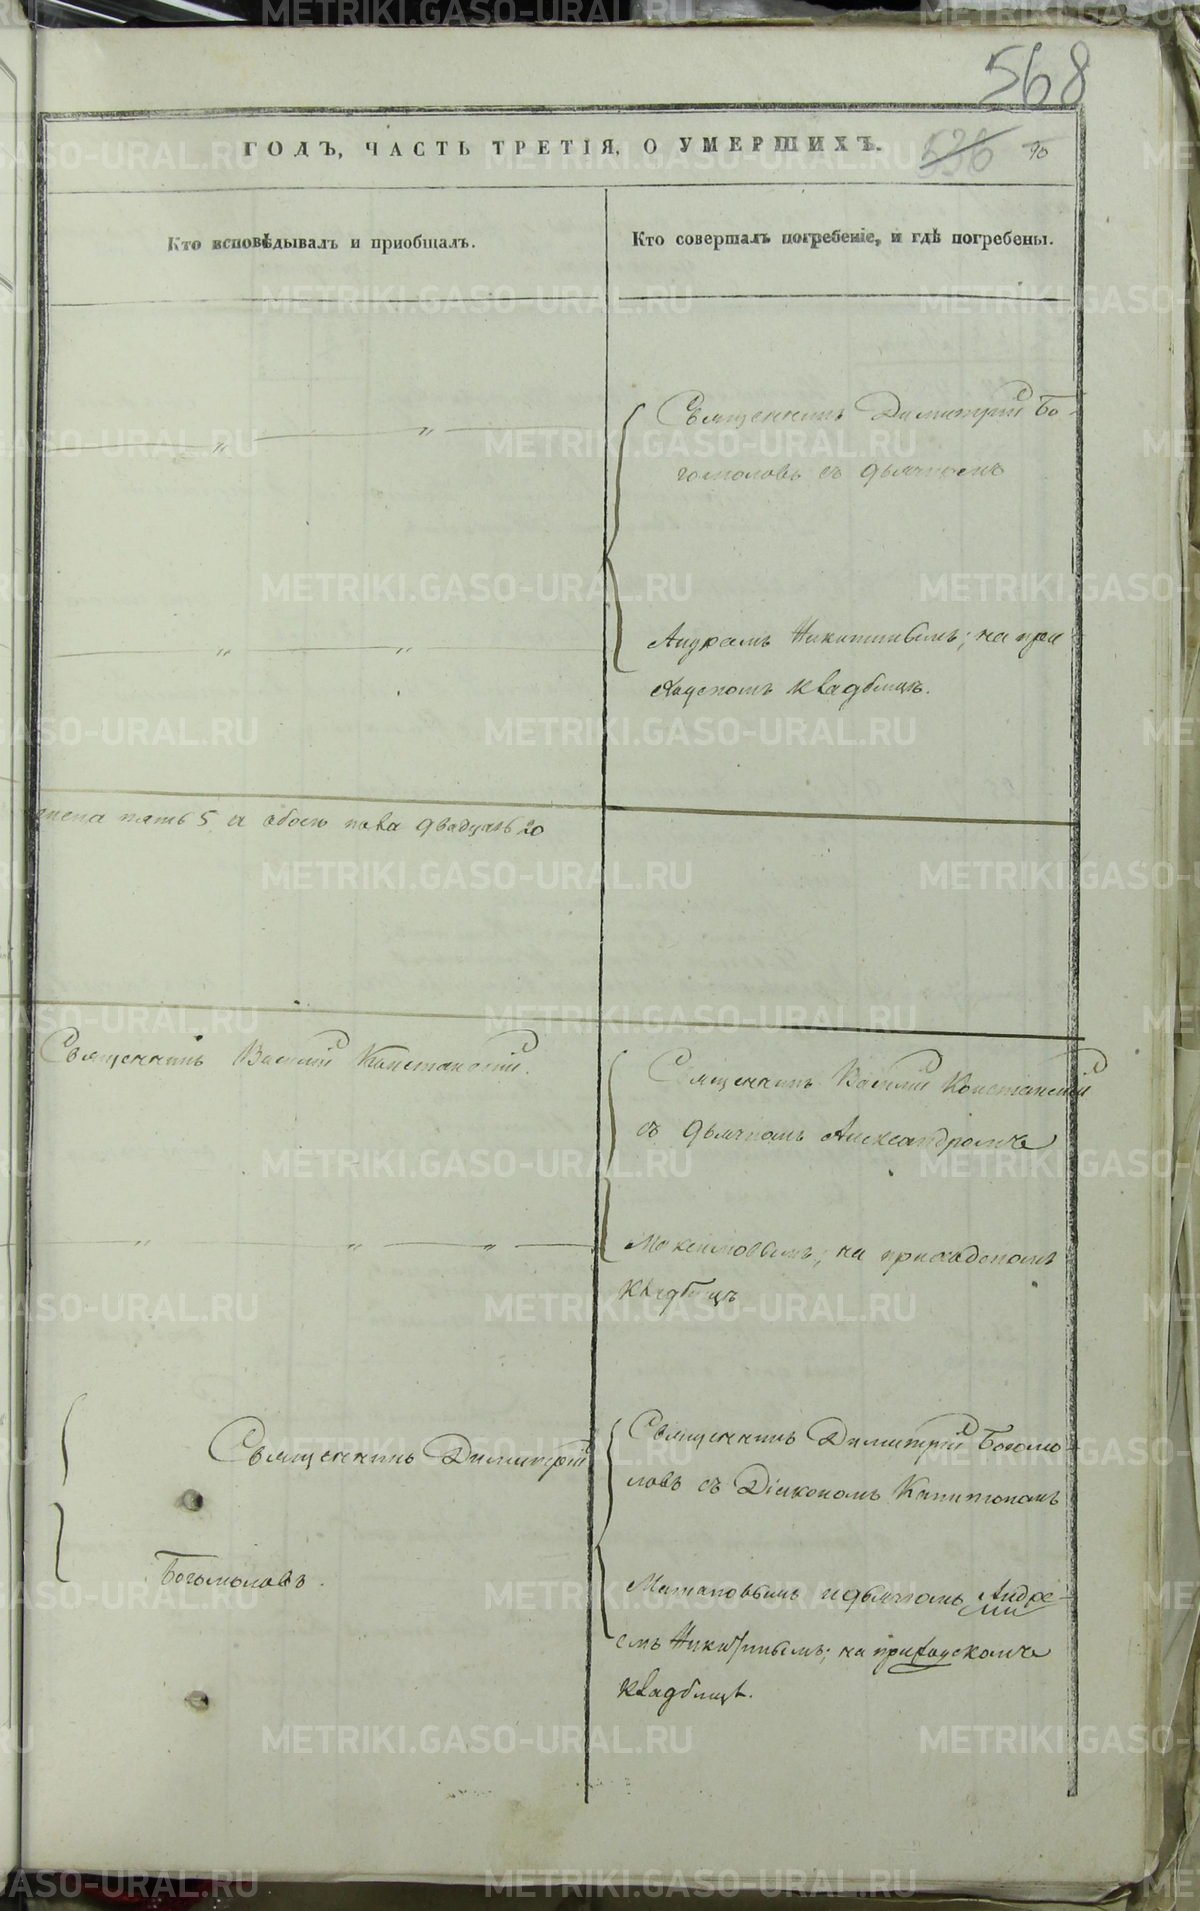 568
ГОДЪ, ЧАСТЬ ТРЕТІЯ, О УМЕРШИХЪ.
536
90
Кто исповѣдывалъ и приобщалъ.
Кто совершалъ погребеніе, и гдѣ погребены.
Священникъ Димитрій Бо-
гомоловъ съ дьячкомъ
Андреемъ Никитинымъ; на при
ходскомъ кладбищѣ.
пола пять 5 а обоего пола двадцать 20
Священникъ Василій Констанскій.
Священникъ Василій Констанскій
съ дьячкомъ Александромъ
Максимовымъ; на приходскомъ
кладбищѣ
Священникъ Димитрій
Богомоловъ.
Священникъ Димитрій Богомо-
ловъ съ Діакономъ Капитономъ
и дьячкомъ Андре-
емъ Никитинымъ; на приходскомъ
кладбищѣ.
METRIKI.GASO-URAL.RU